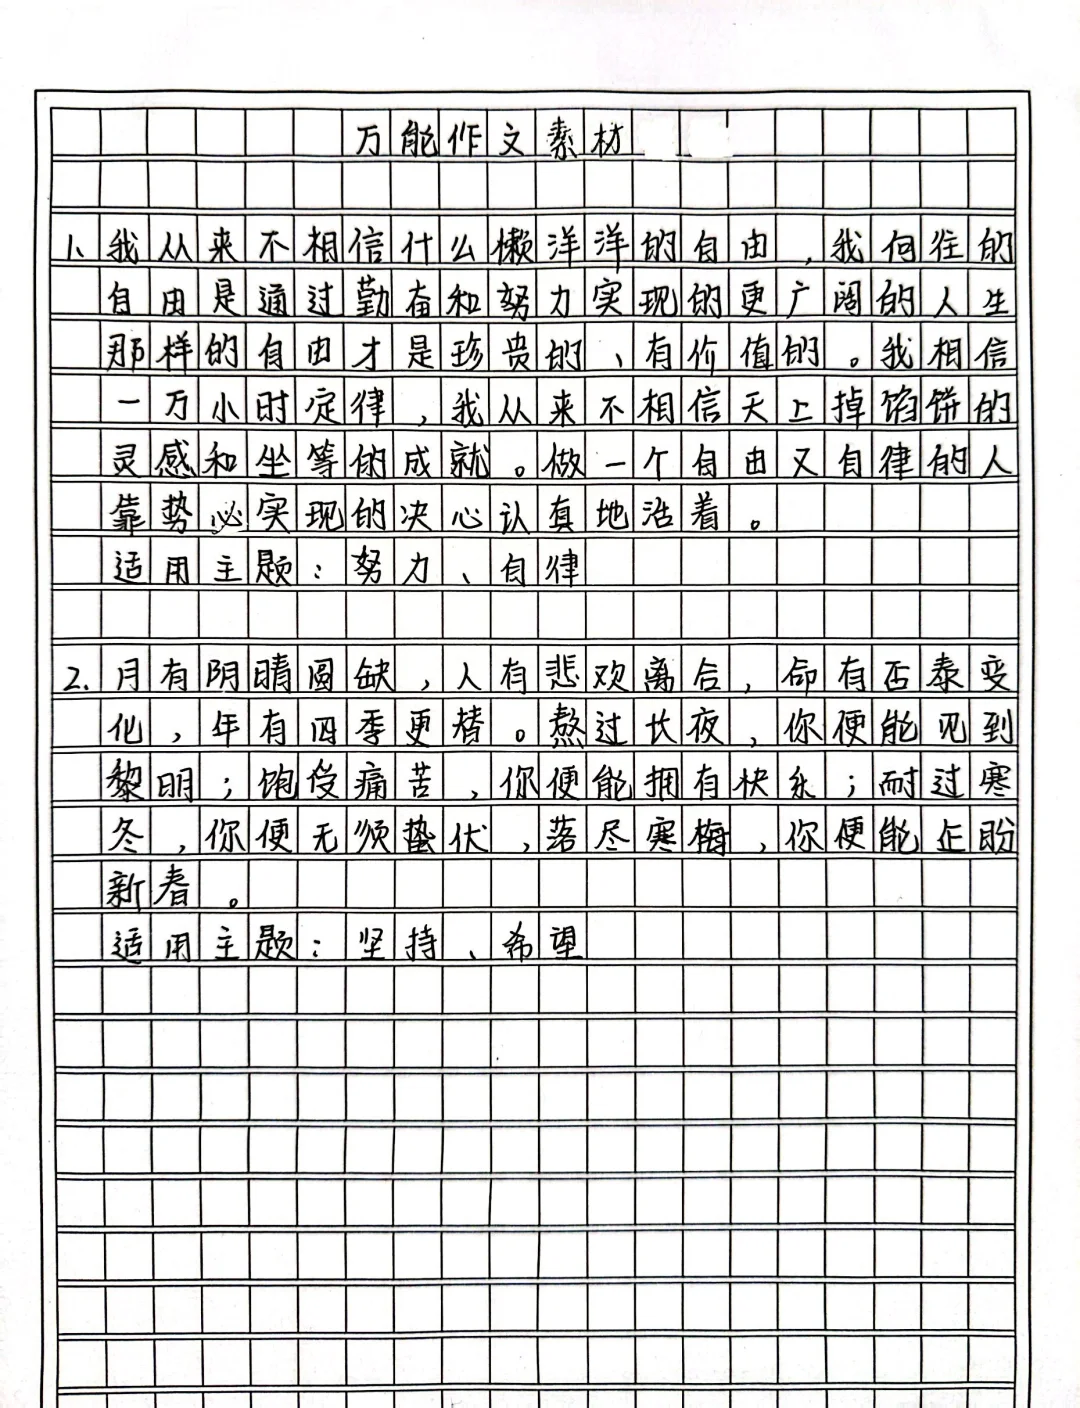 万能作文素材
1、我从来不相信什么懒洋洋的自由，我向往的
自由是通过勤奋和努力实现的更广阔的人生
那样的自由才是珍贵的、有价值的。我相信
一万小时定律，我从来不相信天上掉馅饼的
灵感和坐等的成就。做一个自由又自律的人
靠势必实现的决心认真地活着。
适用主题：努力、自律
2.月有阴晴圆缺，人有悲欢离合，命有否泰变
化，年有四季更替。熬过长夜，你便能见到
黎明；饱受痛苦，你便能拥有快乐；耐过寒
冬，你便无须蛰伏，落尽寒梅，你便能企盼
新春。
适用主题：坚持、希望